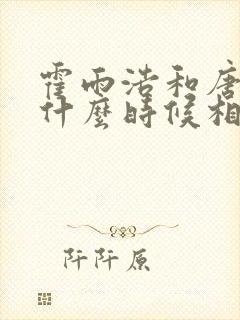 霍雨浩和唐
什麼時候相
阡阡原